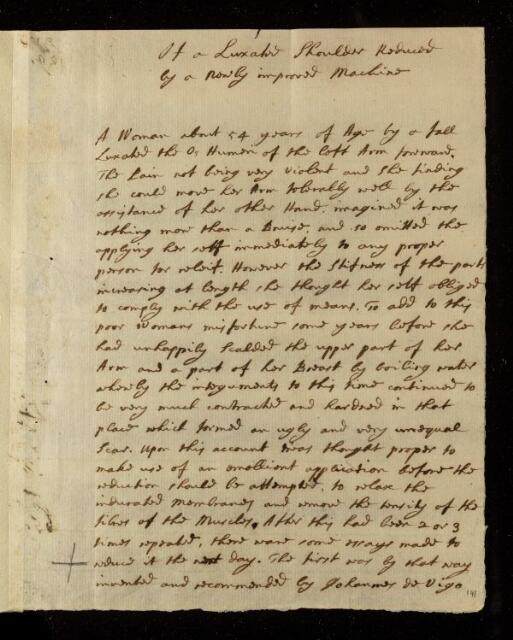 Of a Luxated Shoulder Reduced
by a Newly improved Machine
A Woman about 54 years of Age by a fall
Luxated the Os Humeri of the left Arm forward.
The Pain not being very violent and she finding
she could move her Arm tolerably well by the
assistance of her other Hand, imagined it was
nothing more than a Bruise, and so omitted the
applying her self immediately to any proper
person for releif. However the Stifness of the parts
increasing at length she thought her self obliged
to comply with the use of means. To add to this
poor Womans misfortune some years before she
had unhappily Scalded the upper part of her
Arm and a part of her Breast by boiling water
whereby the integuments to this time continued to
be very much contracted and hardned in that
place which formed an ugly and very unequal
Scar. Upon this account twas thought proper to
make use of an emollient application before the
reduction should be attempted, to relax the
indurated Membranes and remove the tensity of the
fibres of the Muscles. After this had been 2 or 3
times repeated, there were some essays made to
reduce it the next day. The first was by that way
invented and recommended by Johannes de Vigo